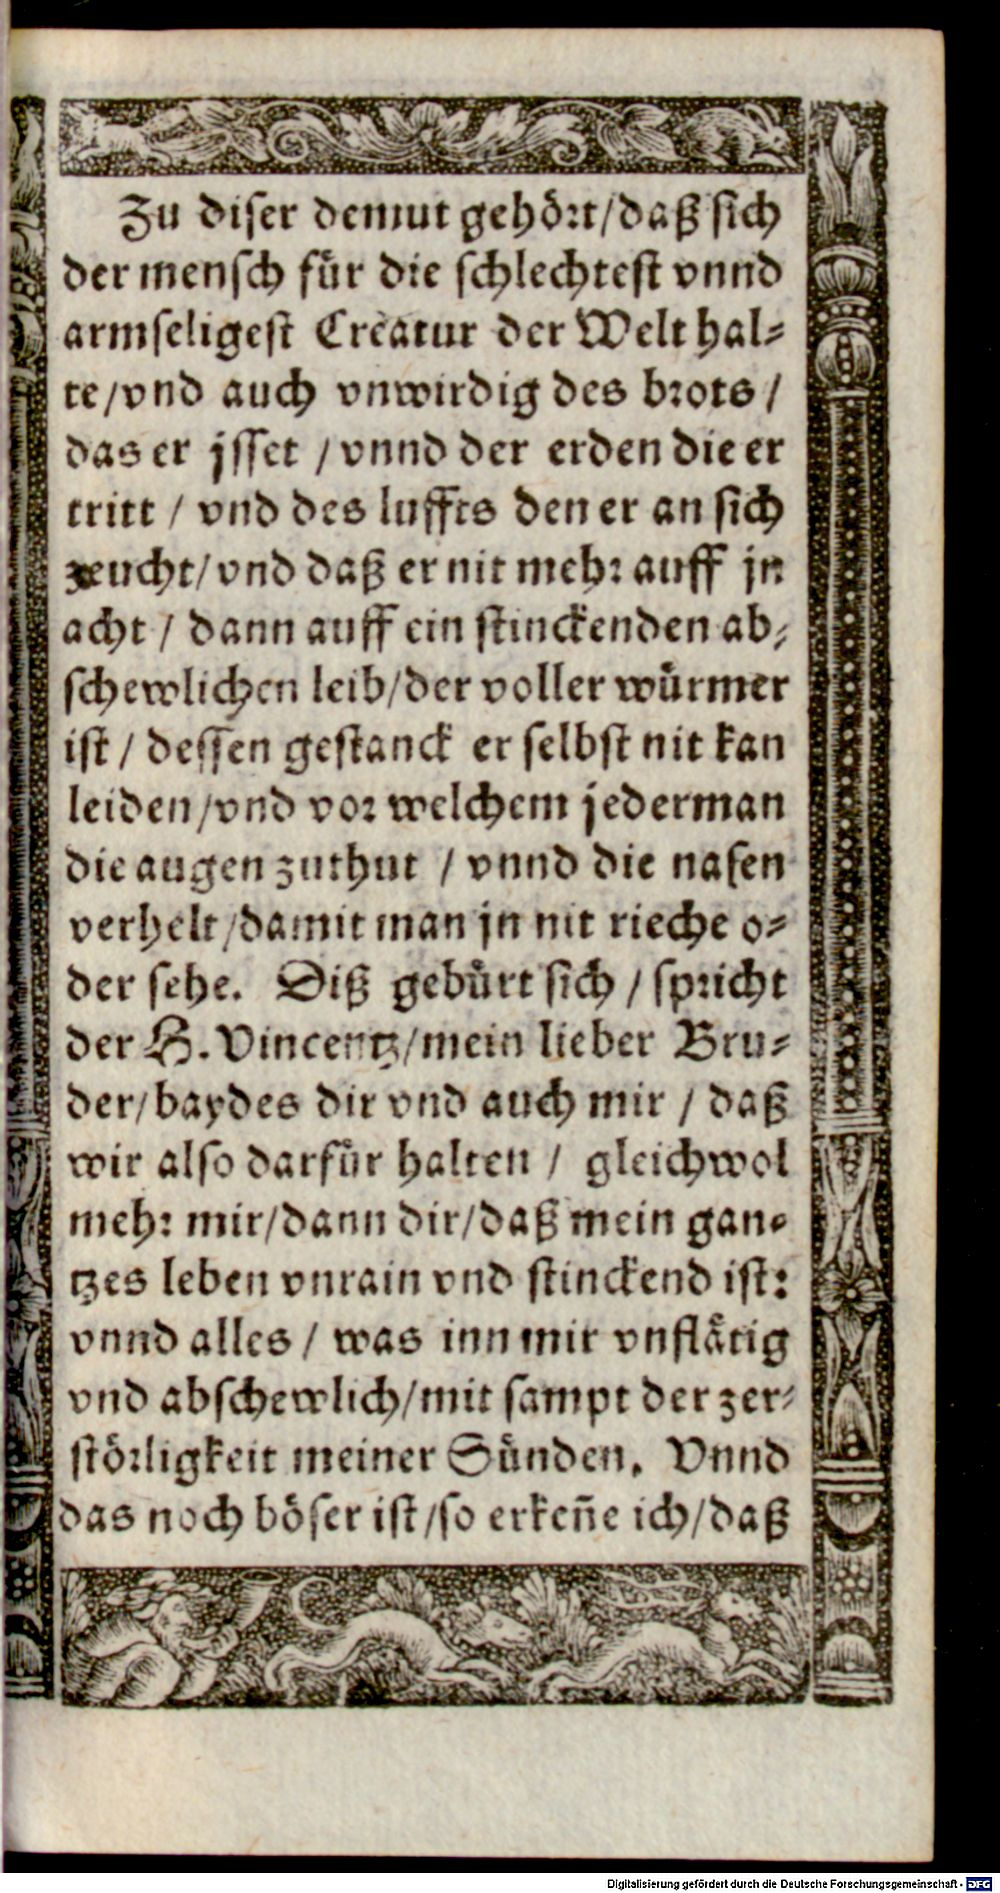 Zu diser demut gehört/daß sich
der mensch für die schlechtest vnnd
armseligest Creatur der Welt hal-
te/vnd auch vnwirdig des brots /
das er jsset / vnnd der erden die er
tritt / vnd des luffts den er an sich
zeucht/vnd daß er nit mehr auff jn
acht / dann auff ein stinckenden ab-
schewlichen leib/der voller würmer
ist / dessen gestanck er selbst nit kan
leiden/vnd vor welchem jederman
die augen zuthut / vnnd die nasen
verhelt/damit man jn nit rieche o-
der sehe. Diß gebürt sich / spricht
der H. Vincentz/mein lieber Bru-
der/baydes dir vnd auch mir / daß
wir also darfür halten / gleichwol
mehr mir/dann dir/daß mein gan-
tzes leben vnrain vnd stinckend ist:
vnnd alles / was inn mir vnflätig
vnd abschewlich/mit sampt der zer-
störligkeit meiner Sünden. Vnnd
das noch böser ist/so erkeñe ich/daß
Digitalisierung gefördert durch die Deutsche Forschungsgemeinschaft - DFG